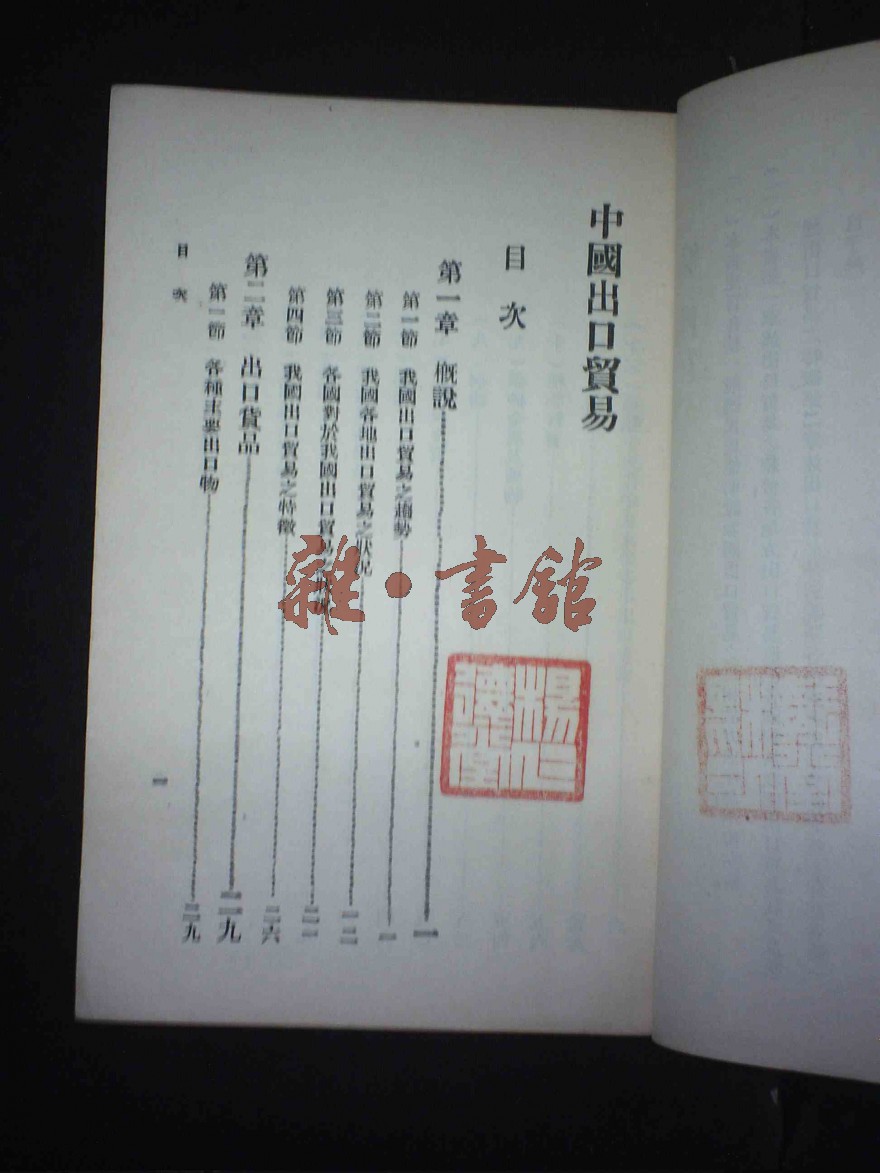 中國出口貿易
目次
第一章 概說 一
第一節 我國出口貿易之趨勢 一
第二節 我國各地出口貿易之狀況 一二
第三節 各國對於我國出口貿易之 二一
第四節 我國出口貿易之特徵 二六
第二章 出口貨品 二九
第一節 各種主要出口物 二九
目次
一
雜·書館